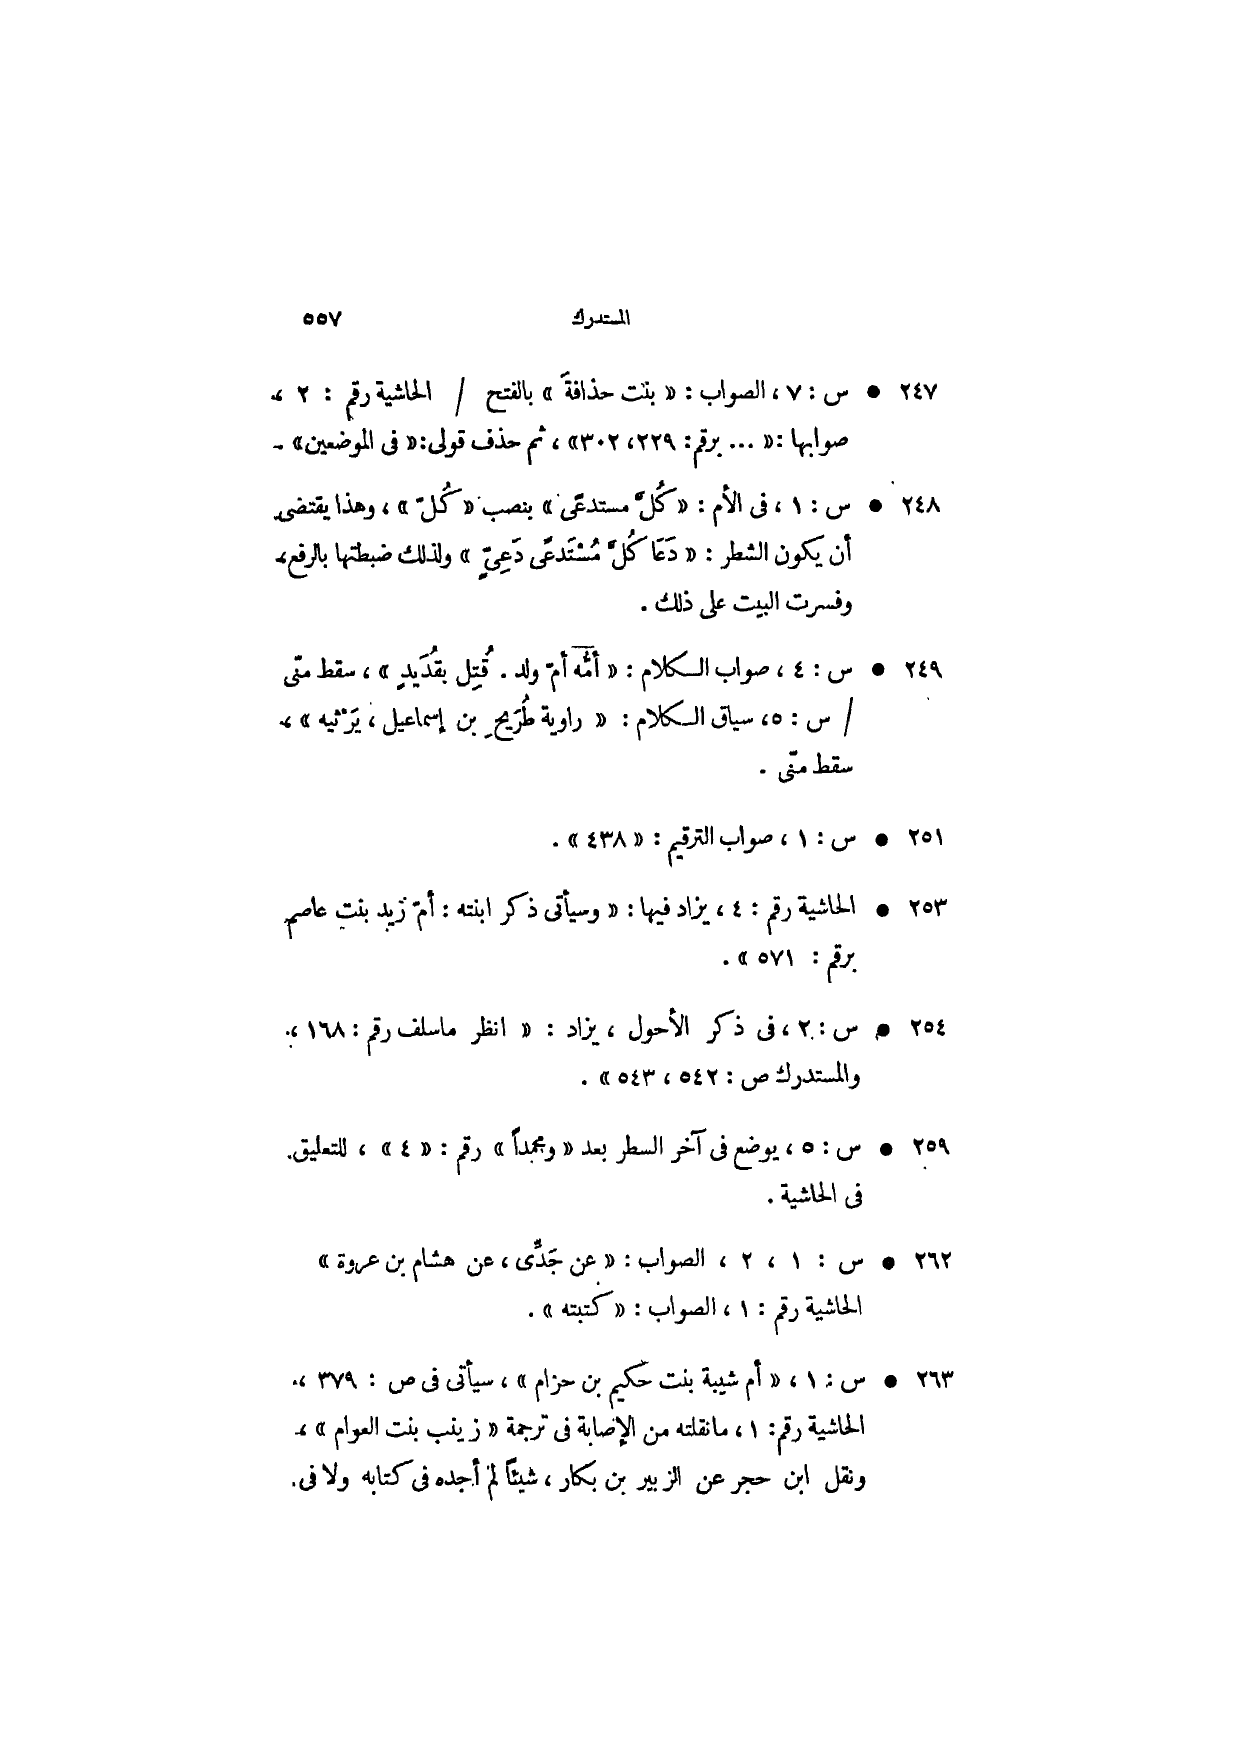 المستدرك ٥٥٧
٢٤٧ ● س : ٧ ، الصواب : « بنت حذافةَ » بالفتح / الحاشية رقم : ٢ ،
صوابها : « ... برقم : ٢٢٩ ، ٣٠٢ » ، ثم حذف قولى : « فى الموضعين » .
٢٤٨ ● س : ١ ، فى الأم : « كُلَّ مستدعًى » بنصب « كُلّ » ، وهذا يقتضى
أن يكون الشطر : « دَعَا كُلَّ مُسْتَدعًى دَعِيٍّ » ولذلك ضبطتها بالرفع ،
وفسرت البيت على ذلك .
٢٤٩ ● س : ٤ ، صواب الكلام : « أمُّه أمّ ولد . قُتِل بقُدَيدٍ » ، سقط منّى
/ س : ٥ ، سياق الكلام : « راوية طُرَيحِ بن إسماعيل ، يَرْثيه » ،
سقط منّى .
٢٥١ ● س : ١ ، صواب الترقيم : « ٤٣٨ » .
٢٥٣ ● الحاشية رقم : ٤ ، يزاد فيها : « وسيأتى ذكر ابنته : أمّ زيد بنت عاصم
برقم : ٥٧١ » .
٢٥٤ ● س : ٢ ، فى ذكر الأحول ، يزاد : « انظر ماسلف رقم : ١٦٨ ،
والمستدرك ص : ٥٤٢ ، ٥٤٣ » .
٢٥٩ ● س : ٥ ، يوضع فى آخر السطر بعد « ومحمداً » رقم : « ٤ » ، للتعليق
فى الحاشية .
٢٦٢ ● س : ١ ، ٢ ، الصواب : « عن جَدِّى ، عن هشام بن عروة »
الحاشية رقم : ١ ، الصواب : « كتبته » .
٢٦٣ ● س : ١ ، « أم شيبة بنت حكيم بن حزام » ، سيأتى فى ص : ٣٧٩ ،
الحاشية رقم : ١ ، مانقلته من الإصابة فى ترجمة « زينب بنت العوام » ،
ونقل ابن حجر عن الزبير بن بكار ، شيئاً لم أجده فى كتابه ولا فى